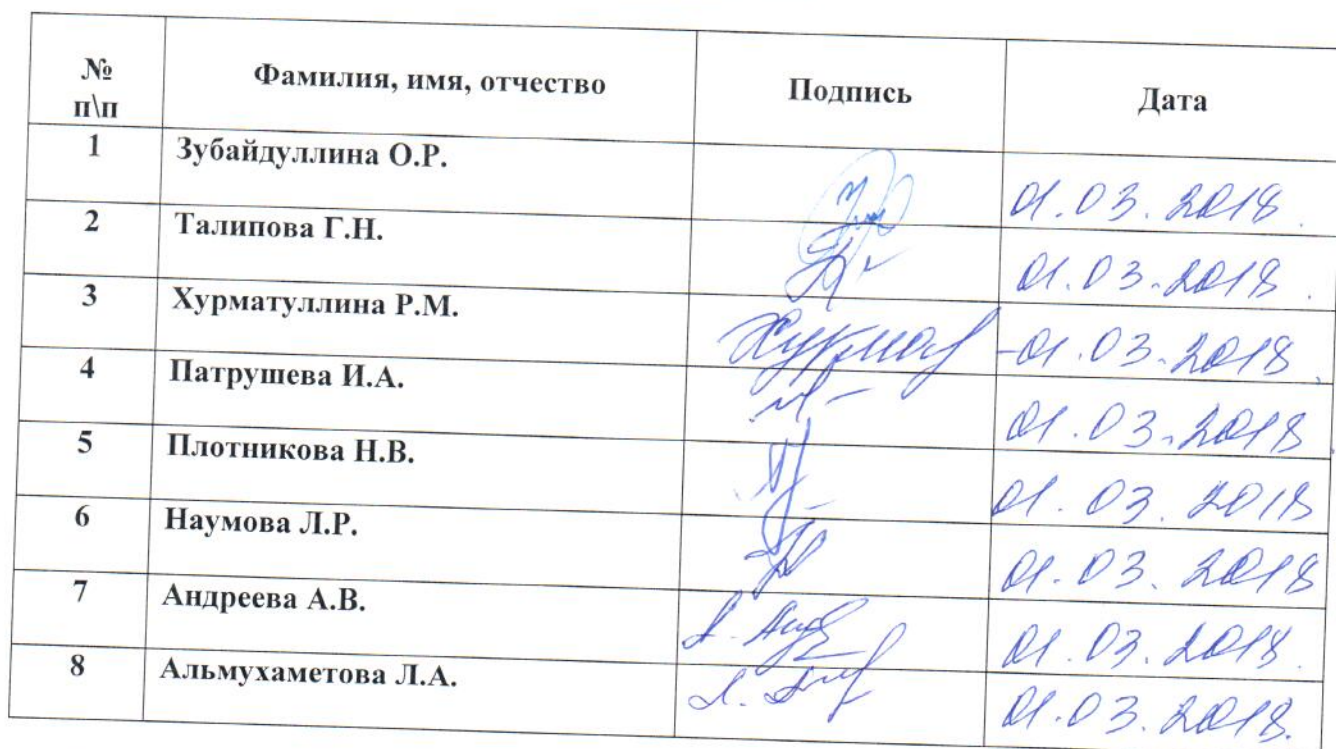 № п\п Фамилия, имя, отчество Подпись Дата
1 Зубайдуллина О.Р. 01.03.2018.
2 Талипова Г.Н. 01.03.2018.
3 Хурматуллина Р.М. Хурмат -01.03.2018.
4 Патрушева И.А. 01.03.2018.
5 Плотникова Н.В. 01.03.2018
6 Наумова Л.Р. 01.03.2018
7 Андреева А.В. 01.03.2018.
8 Альмухаметова Л.А. 01.03.2018.